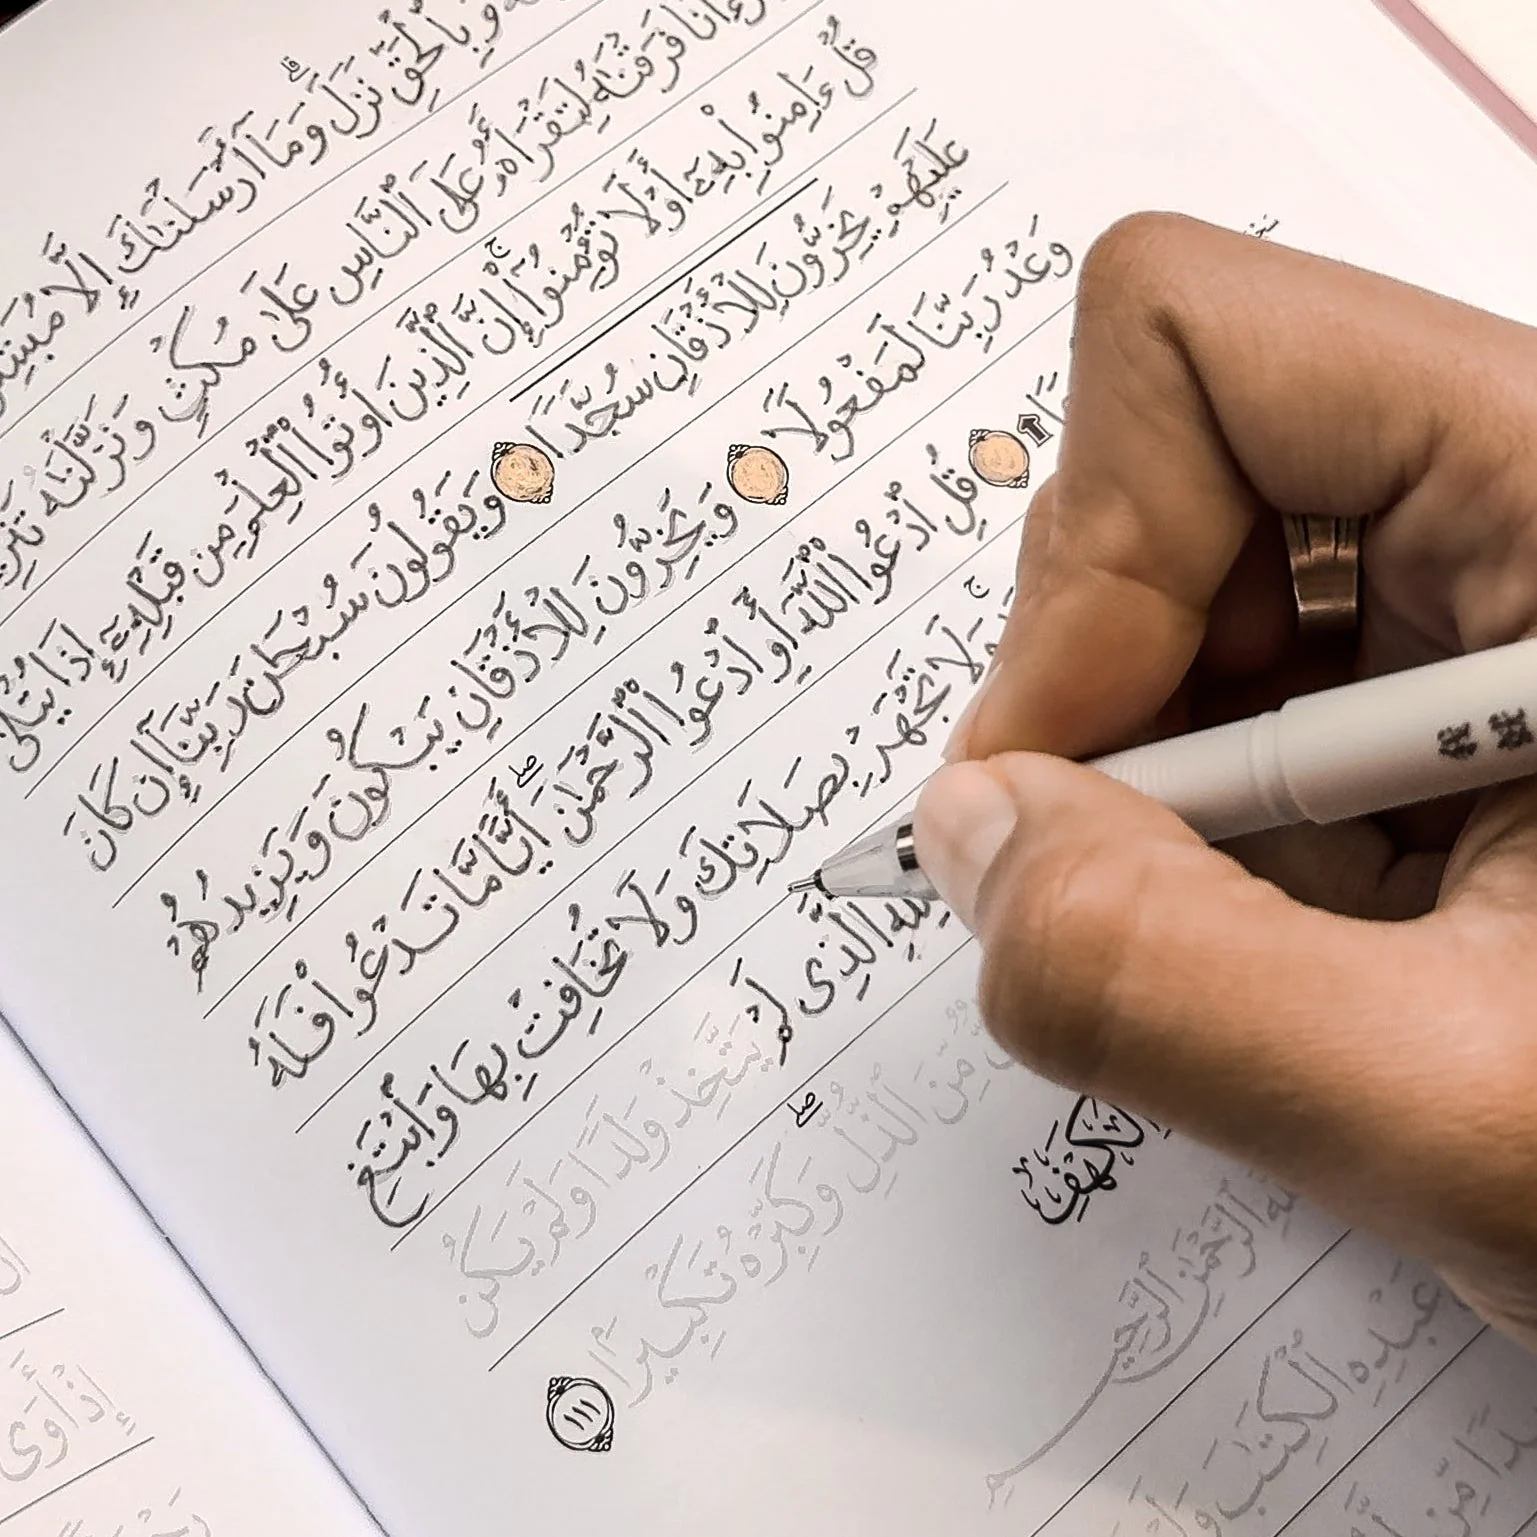 وَبِٱلْحَقِّ نَزَلَ ۗ وَمَآ أَرْسَلْنَٰكَ إِلَّا
فَرَقْنَٰهُ لِتَقْرَأَهُۥ عَلَى ٱلنَّاسِ عَلَىٰ مُكْثٍ وَنَزَّلْنَٰهُ
قُلْ ءَامِنُوا۟ بِهِۦٓ أَوْ لَا تُؤْمِنُوٓا۟ ۚ إِنَّ ٱلَّذِينَ أُوتُوا۟ ٱلْعِلْمَ مِن قَبْلِهِۦٓ إِذَا يُتْلَىٰ
عَلَيْهِمْ يَخِرُّونَ لِلْأَذْقَانِ سُجَّدًا وَيَقُولُونَ سُبْحَٰنَ رَبِّنَآ إِن كَانَ
وَعْدُ رَبِّنَا لَمَفْعُولًا وَيَخِرُّونَ لِلْأَذْقَانِ يَبْكُونَ وَيَزِيدُهُمْ
قُلِ ٱدْعُوا۟ ٱللَّهَ أَوِ ٱدْعُوا۟ ٱلرَّحْمَٰنَ ۖ أَيًّا مَّا تَدْعُوا۟ فَلَهُ
وَلَا تَجْهَرْ بِصَلَاتِكَ وَلَا تُخَافِتْ بِهَا وَٱبْتَغِ
ٱلَّذِى لَمْ يَتَّخِذْ وَلَدًا وَلَمْ يَكُن
مِّنَ ٱلذُّلِّ ۖ وَكَبِّرْهُ تَكْبِيرًۢا ١١١
ٱلْكَهْفِ
ٱلرَّحْمَٰنِ ٱلرَّحِيمِ
عَبْدِهِ ٱلْكِتَٰبَ وَلَمْ
إِذْ أَوَى